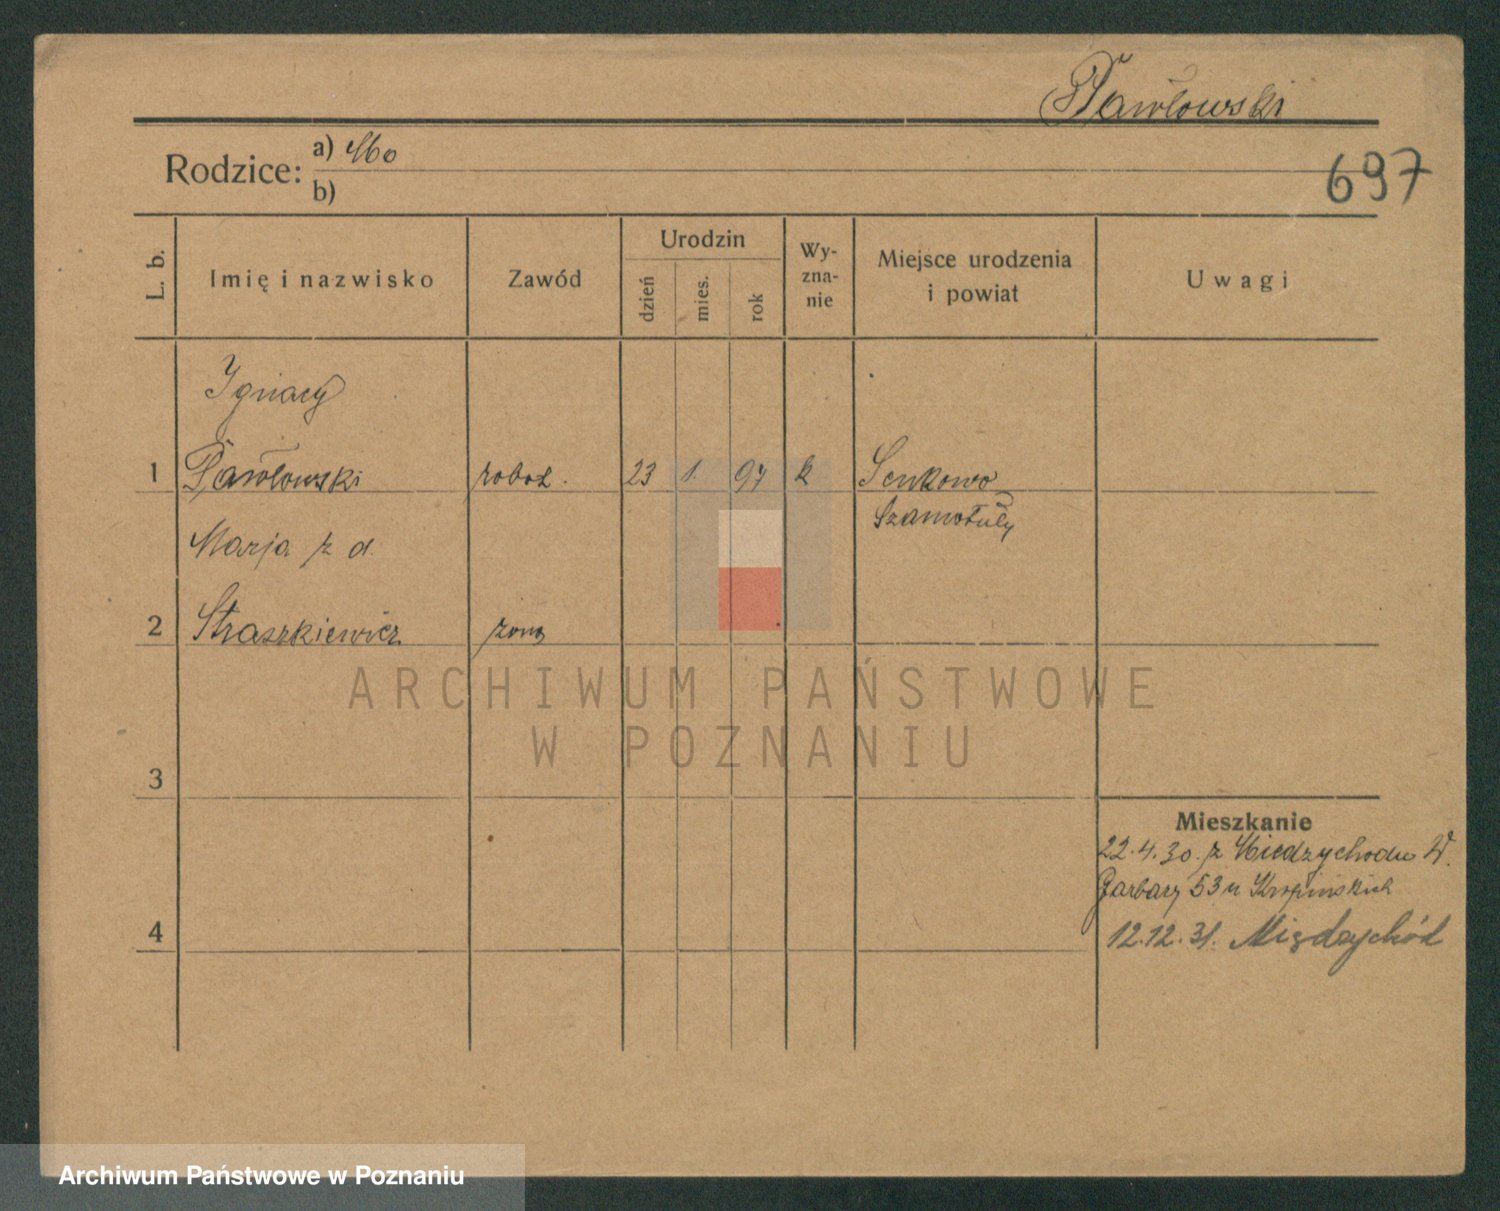 Pawłowski
Rodzice: a)
b)
697
L. b.
Imię i nazwisko
Zawód
Urodzin
dzień
mies.
rok
Wy-
zna-
nie
Miejsce urodzenia
i powiat
Uwagi
Ignacy
1 Pawłowski robot. 23 1. 97 k Senkowo
Szamotuły
Marja z d.
2 Straszkiewicz żona
3
4
Mieszkanie
22.4.30. z Międzychodu W.
Garbary 53 u
12.12.31. Międzychód
ARCHIWUM PAŃSTWOWE
W POZNANIU
Archiwum Państwowe w Poznaniu